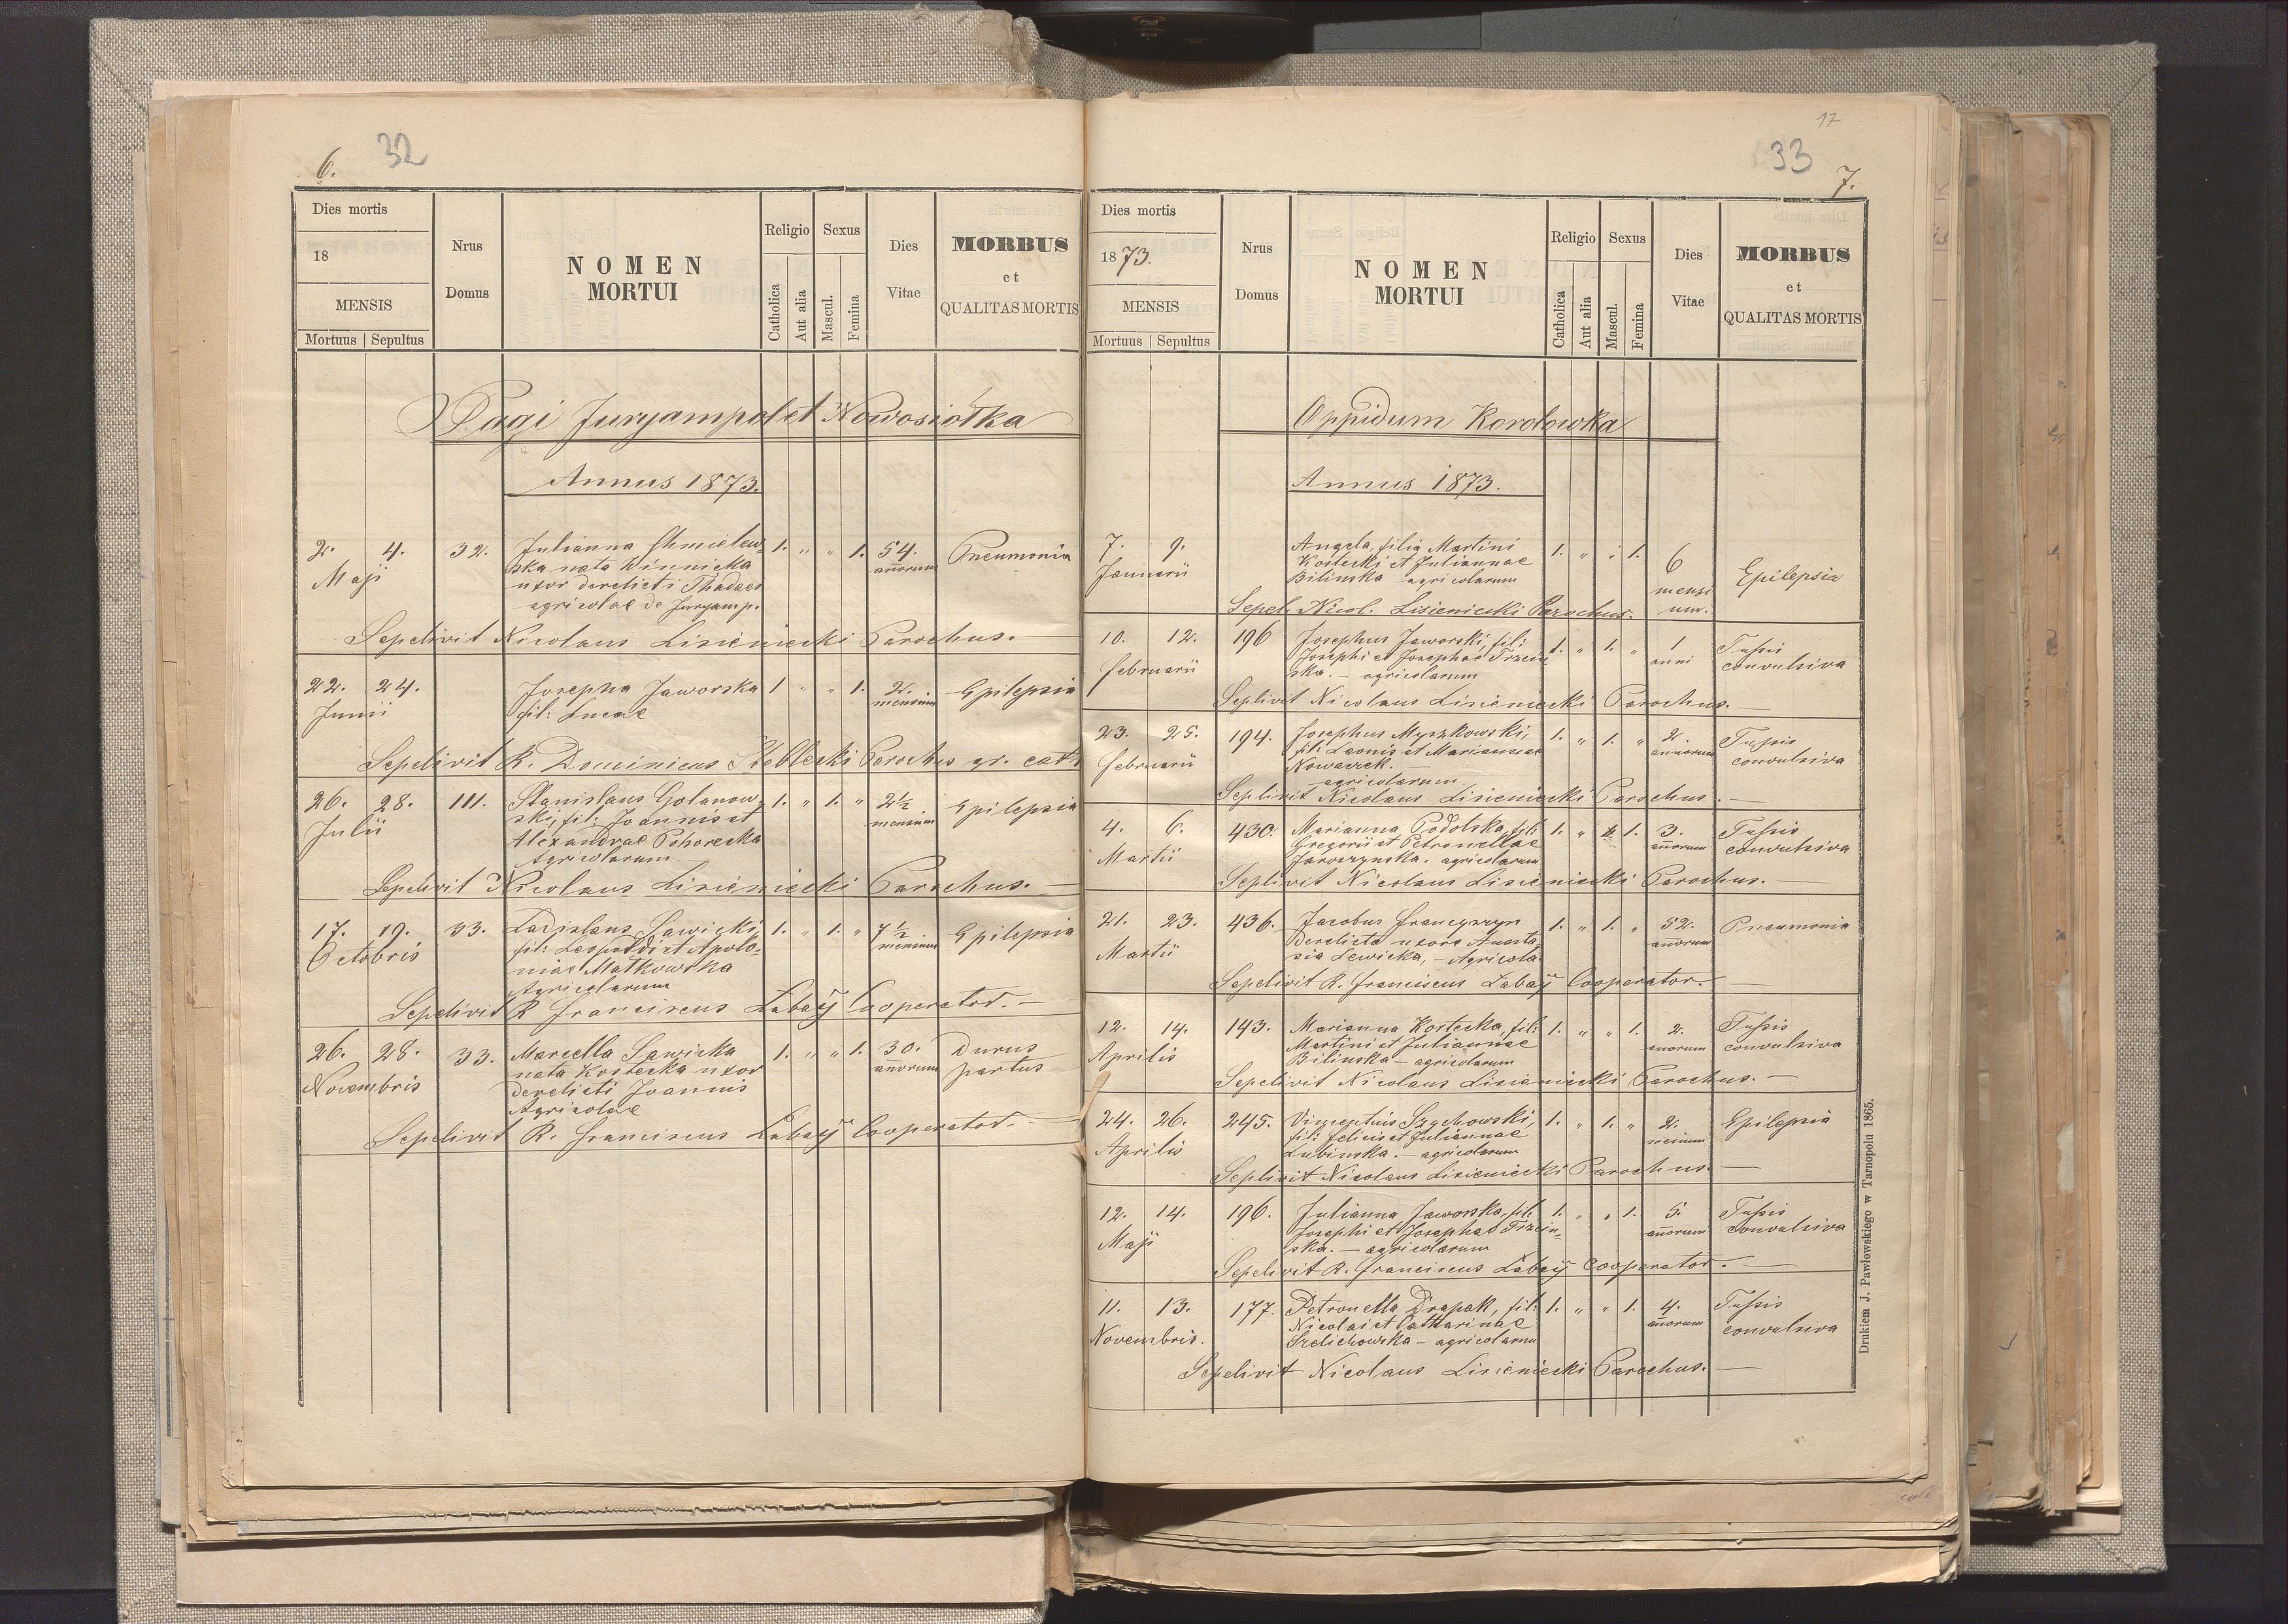 6. 32
Dies mortis
18
MENSIS
Mortuus | Sepultus
Nrus
Domus
NOMEN
MORTUI
Religio
Catholica
Aut alia
Sexus
Mascul.
Femina
Dies
Vitae
MORBUS
et
QUALITAS MORTIS
Pagi Juryampol et Nowosiołka
Annus 1873.
2. 4. 32. Julianna Chmielew- 1. " " 1. 54. Pneumonia
Maji ska nata Winnicka annorum
uxor derelicti Thadaei
agricolae de Juryamp.
Sepelivit Nicolaus Lisieniecki Parochus.
22. 24. Josepha Jaworska 1 " " 1. 2. Epilepsia
Junii fil: Lucae mensium
Sepelivit R. Dominicus Parochus gr. cath
26. 28. 111. Stanislaus Golanow- 1. " 1. " 2½ Epilepsia
Julii ski, fil: Joannis et mensium
Alexandrae Pohorecka
Agricolarum
Sepelivit Nicolaus Lisieniecki Parochus.
17. 19. 33. Ladislaus Sawicki, 1. " 1. " 7½ Epilepsia
Octobris fil: Leopoldi et Apolo- mensium
niae Matkowska
Agricolarum
Sepelivit R Franciscus Łabaij Cooperator.
26. 28. 33. Marcella Sawicka 1. " " 1. 30. Durus
Novembris nata Kostecka uxor anorum partus
derelicti Joannis
Agricolae
Sepelivit R. Franciscus Łabaij Cooperator.
17
33 7.
Dies mortis
1873.
MENSIS
Mortuus | Sepultus
Nrus
Domus
NOMEN
MORTUI
Religio
Catholica
Aut alia
Sexus
Mascul.
Femina
Dies
Vitae
MORBUS
et
QUALITAS MORTIS
Oppidum Korolowka
Annus 1873.
7. 9. Angela, filia Martini 1. " 1. 6 Epilepsia
Januarii Kostecki et Juliannae mensi
Bilinska agricolarum um.
Sepel. Nicol. Lisieniecki Parochus.
10. 12. 196 Josephus Jaworski, fil: 1. " 1. " 1 Tussis
Februarii Josephi et Josephae Trzcin anni convulsiva
ska. — agricolarum
Seplivit Nicolaus Lisieniecki Parochus.
23. 25. 194. Josephus Myszkowski, 1. " 1. " 2. Tussis
Februarii fil: Leonis et Mariannae annorum convulsiva
Nowaczek.
agricolarum
Seplivit Nicolaus Lisieniecki Parochus.
4. 6. 430. Marianna Podolska, fil: 1. " 1. 3. Tussis
Martii Gregorii et Petronellae anorum convulsiva
Jaroszynska. agricolarum
Seplivit Nicolaus Lisieniecki Parochus.
21. 23. 436. Jacobus Franczyszyn 1. " 1. " 52. Pneumonia
Martii derelicta uxore Anasta anorum
sia Lewicka, — Agricola
Sepelivit R. Franciscus Łabaij Cooperator.
12. 14. 143. Marianna Kostecka, fil: 1. " " 1. 2. Tussis
Aprilis Martini et Juliannae anorum convulsiva
Bilinska — agricolarum
Sepelivit Nicolaus Lisieniecki Parochus.
24. 26. 245. Vincentius Szychowski, 1. " 1. " 2. Epilepsia
Aprilis fil: Felicis et Juliannae mensium
Lubinska. — agricolarum
Seplivit Nicolaus Lisieniecki Parochus.
12. 14. 196. Julianna Jaworska, fil: 1. " " 1. 5. Tussis
Maji Josephi et Josephae Trzcin- anorum convulsiva
ska. — agricolarum
Sepelivit R. Franciscus Łabaij Cooperator.
11. 13. 177. Petronella Drapak, fil: 1. " " 1. 4. Tussis
Novembris. Nicolai et Catharinae anorum convulsiva
Szelichowska — agricolarum
Sepelivit Nicolaus Lisieniecki Parochus.
Drukiem J. Pawłowskiego w Tarnopolu 1865.